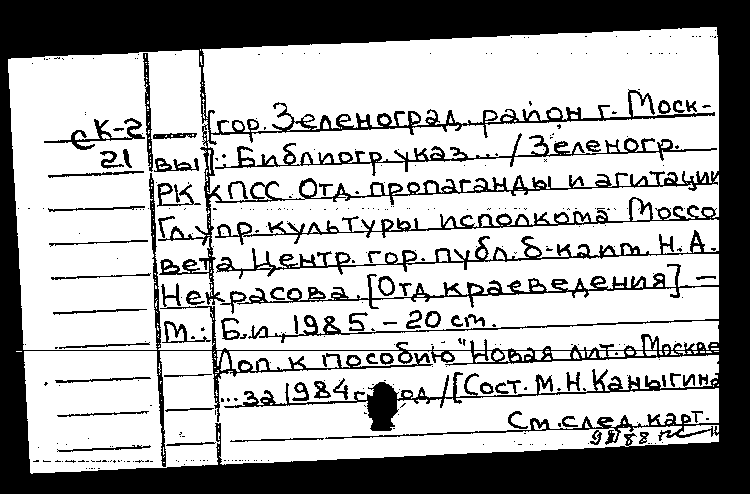 сК-2 [гор. Зеленоград. район г. Моск-
21 вы]: Библиогр. указ... / Зеленогр.
РК КПСС. Отд. пропаганды и агитации
Гл. упр. культуры исполкома Моссо
вета, Центр. гор. публ. б-ка им. Н.А.
Некрасова. [Отд краеведения] –
М.: Б.и., 1985. – 20 см.
Доп. к пособию "Новая лит. о Москве
... за 1984 год / [Сост. М.Н. Каныгина
См. след. карт.